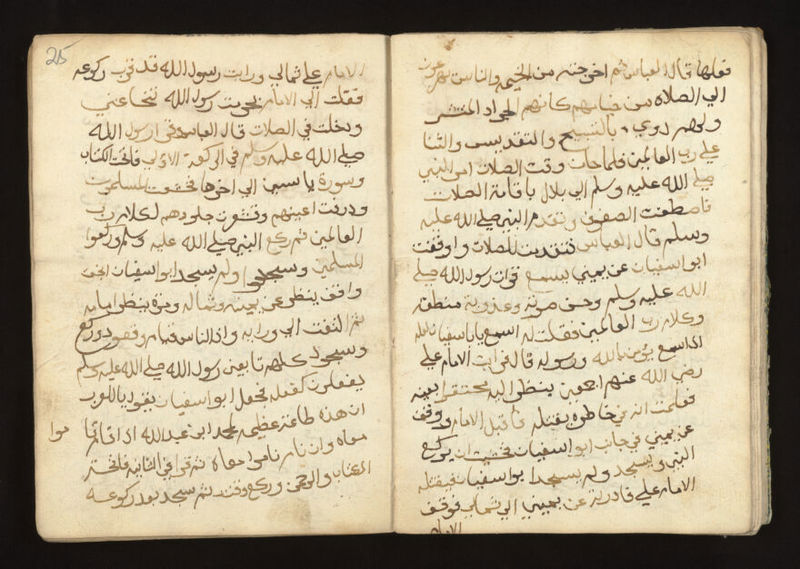 فعلها قال العباس ثم اخرجته من الخيمة والناس يهرعون
الي الصلاة من خيامهم كانهم الجراد المنتشر
ولهم دوي بالتسبيح والتقديس والثنا
علي رب العالمين فلما حان وقت الصلات امر النبي
صلي الله عليه وسلم الي بلال باقامة الصلات
فاصطفت الصفوف وتقدم النبي صلي الله عليه
وسلم قال العباس فتقدمت للصلات واوقفت
ابو اسفيان عن يميني يسمع قراة رسول الله صلي
الله عليه وسلم وحسن صوته وعذوبة منطقه
وكلام رب العالمين فقلت له اسمع يا ابا سفيان
اذا سمع يؤمن بالله ورسوله قال فرايت الامام علي
رضي الله عنهم اجمعين ينظر اليه
فعلمت انه في خاطره بقتله فاقبل الامام ووقف
عن يميني في جانب ابو اسفيان فخشيت ان يركع
النبي ويسجد ولم يسجد ابو اسفيان فيقتله
الامام علي فادرته عن يميني الي شمالي فوقف
الامام
25
الامام علي شمالي ورايت رسول الله قد قرب ركوعه
فقلت الي الامام بحرمت رسول الله تنحا عني
ودخلت في الصلات قال العباس وقرا رسول الله
صلي الله عليه وسلم في الركعة الاولي فاتحت الكتاب
وسورة ياسين الي اخرها فخشعت المسلمون
وذرفت اعينهم وقشعرت جلودهم لكلام رب
العالمين ثم ركع النبي صلي الله عليه وسلم وركعوا
المسلمين وسجدوا ولم يسجد ابو اسفيان
واقف ينظر عن يمينه وشماله ومرة ينظر امامه
ثم التفت الي ورايه واذا الناس قيام وقعود وركع
وسجود كلهم تابعين رسول الله صلي الله عليه وسلم
يفعلون كفعله فجعل ابو اسفيان يقول يا للعرب
ان هذه طاعة عظيمه لمحمد ابن عبد الله اذا قام قاموا
معاه وان نام ناموا معاه ثم قرا في الثانيه فاتحة
الكتاب والرحمن وركع وقت ثم سجد بعد ركوعه